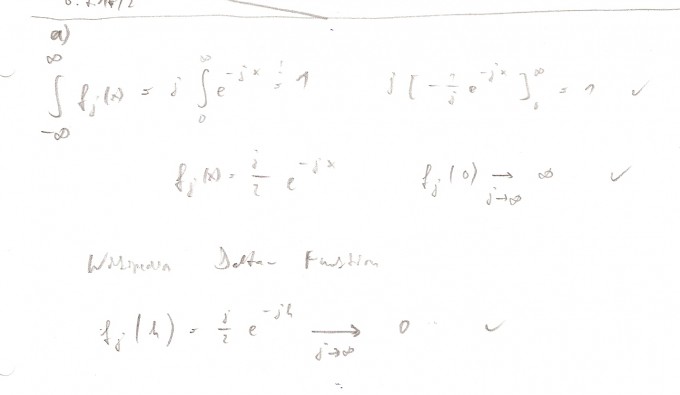 a)
∫_{-∞}^{∞} f_j(x) = j ∫_0^∞ e^{-jx} != 1    j [ -1/j e^{-jx} ]_0^∞ = 1 ✓
f_j(x) = j/2 e^{-jx}    f_j(0) →_{j→∞} ∞ ✓
Wikipedia Delta- Funktion
f_j(h) = j/2 e^{-jh} →_{j→∞} 0 ✓